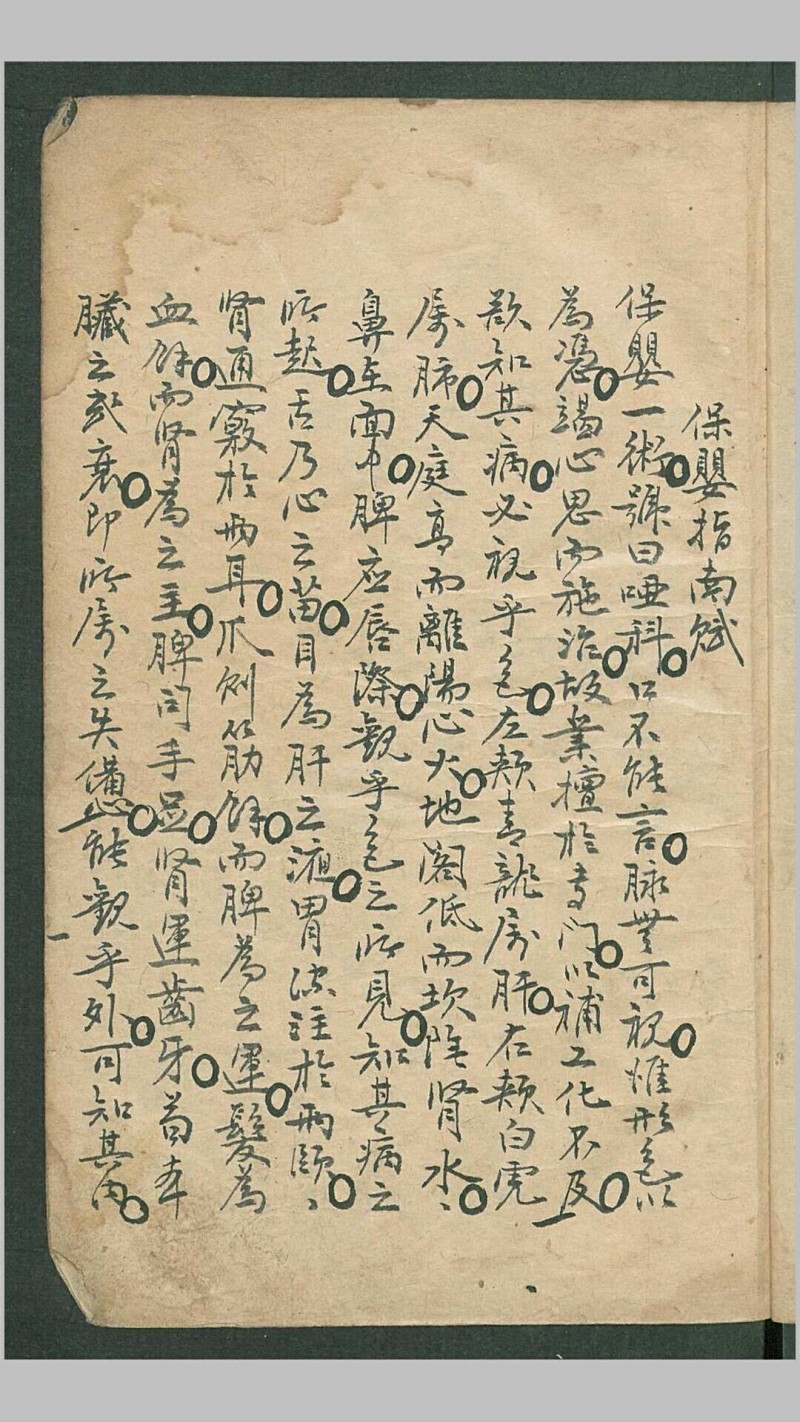 保嬰指南賦
保嬰一術號曰啞科口不能言脉無可視惟形色以
為憑竭心思而施治故業擅於專門以補工化不及
欲知其病必視乎色左頰青龍屬肝右頰白虎
屬肺天庭高而離陽心火地閣低而坎陰腎水、
鼻在面中脾应唇際觀乎色之所見知其病之
所起舌乃心之苗目為肝之液胃流注於兩頤、
腎通竅於兩耳爪則筋餘而脾為之運髮為
血餘而腎為之主脾司手足腎運齒牙苟本
臟之或衰即所屬之失備能觀乎外可知其內